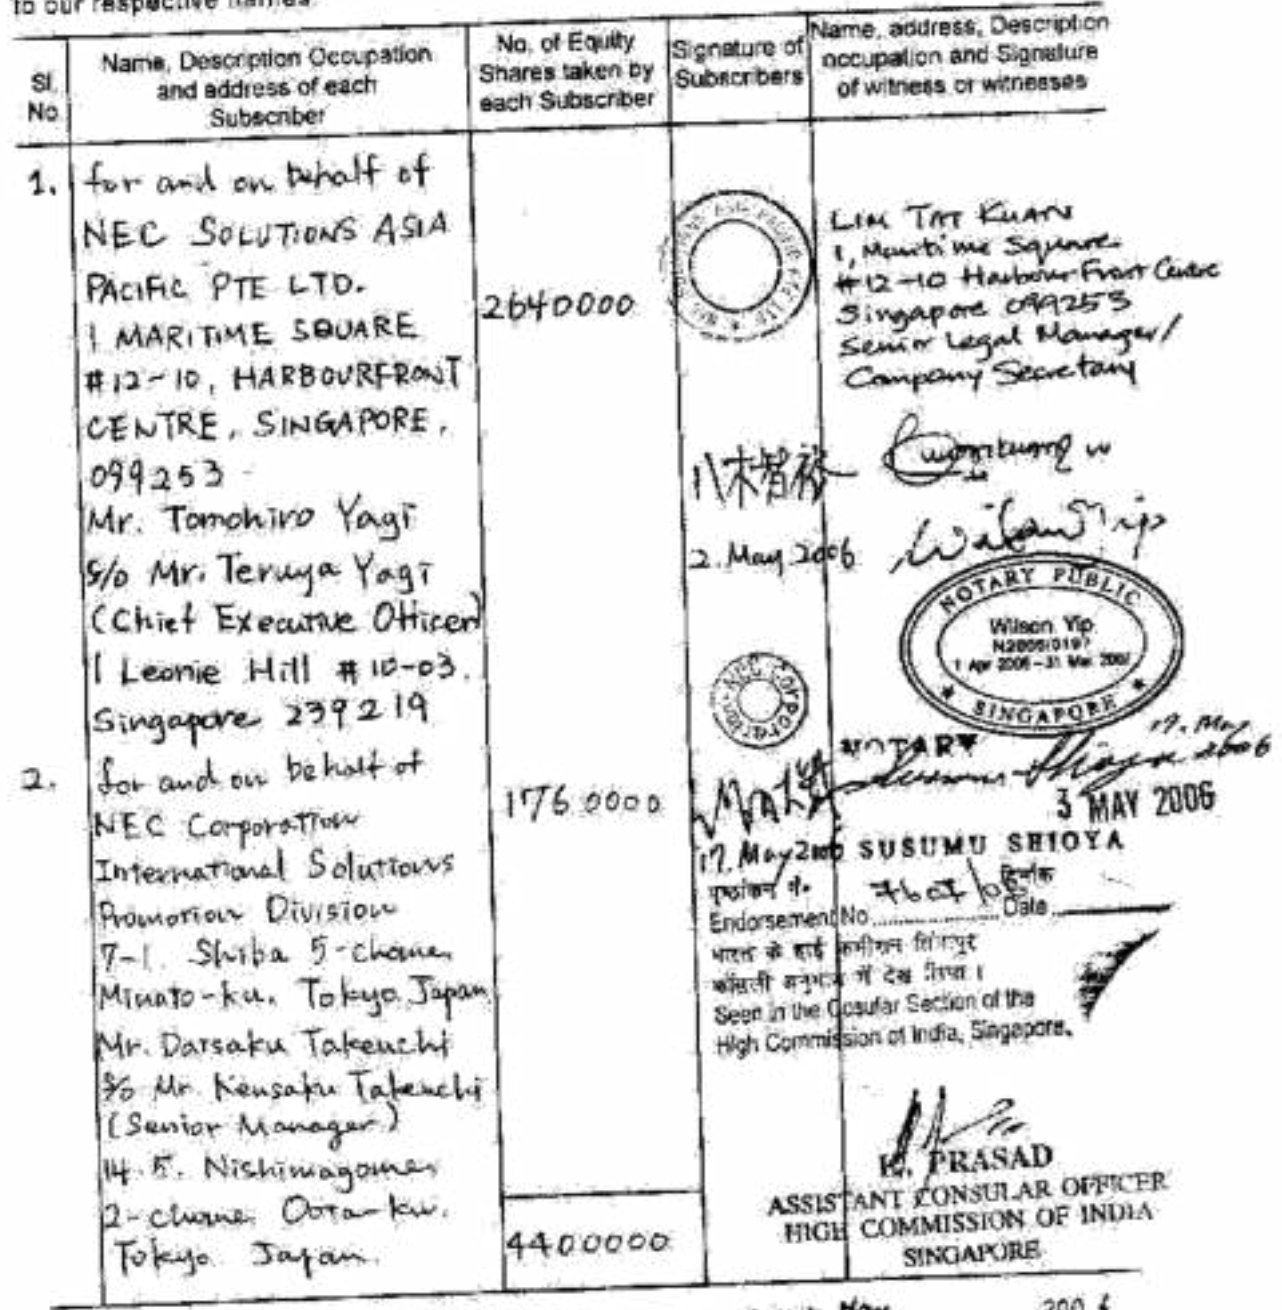 to our respective names
Sl.
No
Name, Description Occupation
and address of each
Subscriber
No. of Equity
Shares taken by
each Subscriber
Signature of
Subscribers
Name, address, Description
occupation and Signature
of witness or witnesses
1.
for and on behalf of
NEC SOLUTIONS ASIA
PACIFIC PTE LTD.
1 MARITIME SQUARE
#12-10, HARBOURFRONT
CENTRE, SINGAPORE,
099253
Mr. Tomohiro Yagi
S/o Mr. Teruya Yagi
(Chief Executive Officer)
1 Leonie Hill #10-03.
Singapore 239219
2640000
八木智裕
2. May 2006
LIM TAT KUAN
1, Maritime Square
#12-10 HarbourFront Centre
Singapore 099253
Senior Legal Manager/
Company Secretary
NOTARY PUBLIC
Wilson Yip
1 Apr 2006 - 31 Mar 2007
SINGAPORE
NOTARY
3 MAY 2006
2.
for and on behalf of
NEC Corporation
International Solutions
Promotion Division
7-1. Shiba 5-chome,
Minato-ku. Tokyo. Japan
Mr. Daisaku Takeuchi
S/o Mr. Kensaku Takeuchi
(Senior Manager)
14-5. Nishimagome,
2-chome. Oota-ku.
Tokyo. Japan.
1760000
4400000
NEC Corporation
17. May 2006
17. May 2006
SUSUMU SHIOYA
पृष्ठांकन नं.
दिनांक
Endorsement No. Date
भारत के हाई कमीशन सिंगापुर
कौंसली अनुभाग में देख लिया ।
Seen in the Cosular Section of the
High Commission of India, Singapore.
K. PRASAD
ASSISTANT CONSULAR OFFICER
HIGH COMMISSION OF INDIA
SINGAPORE
May 2006